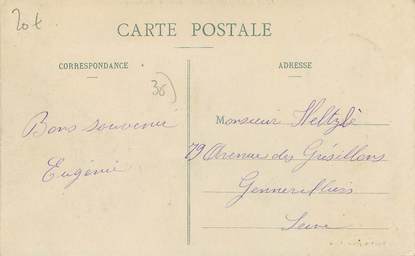 20t
CARTE POSTALE
CORRESPONDANCE
ADRESSE
38)
Bons souvenir
Eugénie
Monsieur Weltzlé
79 Avenue des Grésillons
Gennevilliers
Seine